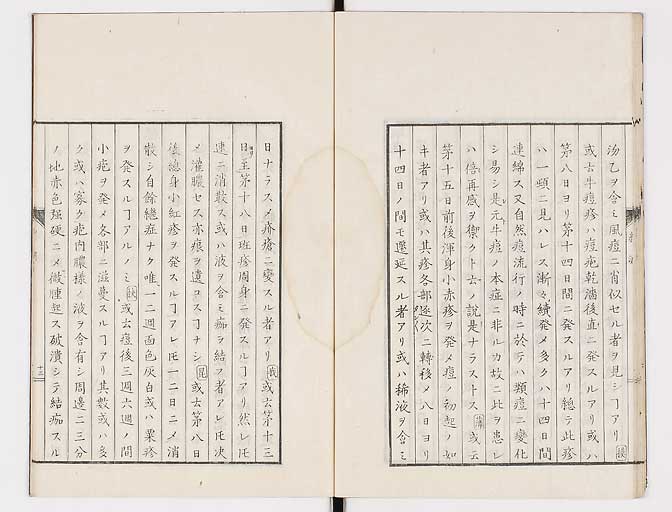 汾乙ヲ含ミ風痘ニ肖似セル者ヲ見シヿアリ
或云牛痘疹ハ痘疱乾燥後直ニ発スルアリ或ハ
第八日ヨリ第十四日間ニ発スルアリ総テ此疹
ハ一頭ニ見ハレス漸々續発メ多クハ十四日間
連綿ス又自然痘流行ノ時ニ於テハ類痘ニ変化
シ易シ是元牛痘ノ本症ニ非ルカ故ニ此ヲ患レ
ハ倍再感ヲ禦クト云ノ説是ナラストス 或云
第十五日前後渾身小赤疹ヲ発メ痘ノ初起ノ如
キ者アリ或ハ其疹各部逐次ニ轉移メ八日ヨリ
十四日ノ間モ遷延スル者アリ或ハ稀液ヲ含ミ
日ナラスメ疥瘡ニ変スル者アリ 或云第十三
日至第十八日斑疹周身ニ発スルヿアリ然レ𪜈
速ニ消散ス或ハ液ヲ含ミ痂ヲ結フ者アレ𪜈决
メ灌膿セス赤痕ヲ遺コスヿナシ 或云第八日
後総身小紅疹ヲ発スルヿアレ𪜈一二日ニメ消
散シ自餘継症ナク唯一二週面色灰白或ハ粟疹
ヲ発スルヿアルノミ 或云痘後三週六週ノ間
小疱ヲ発メ各部ニ滋蔓スルヿアリ其數或ハ多
ク或ハ寡ク疱内膿様ノ液ヲ含有シ周邊二三分
ノ地赤色强硬ニメ微腫起ス破潰シテ結痂スル
十三